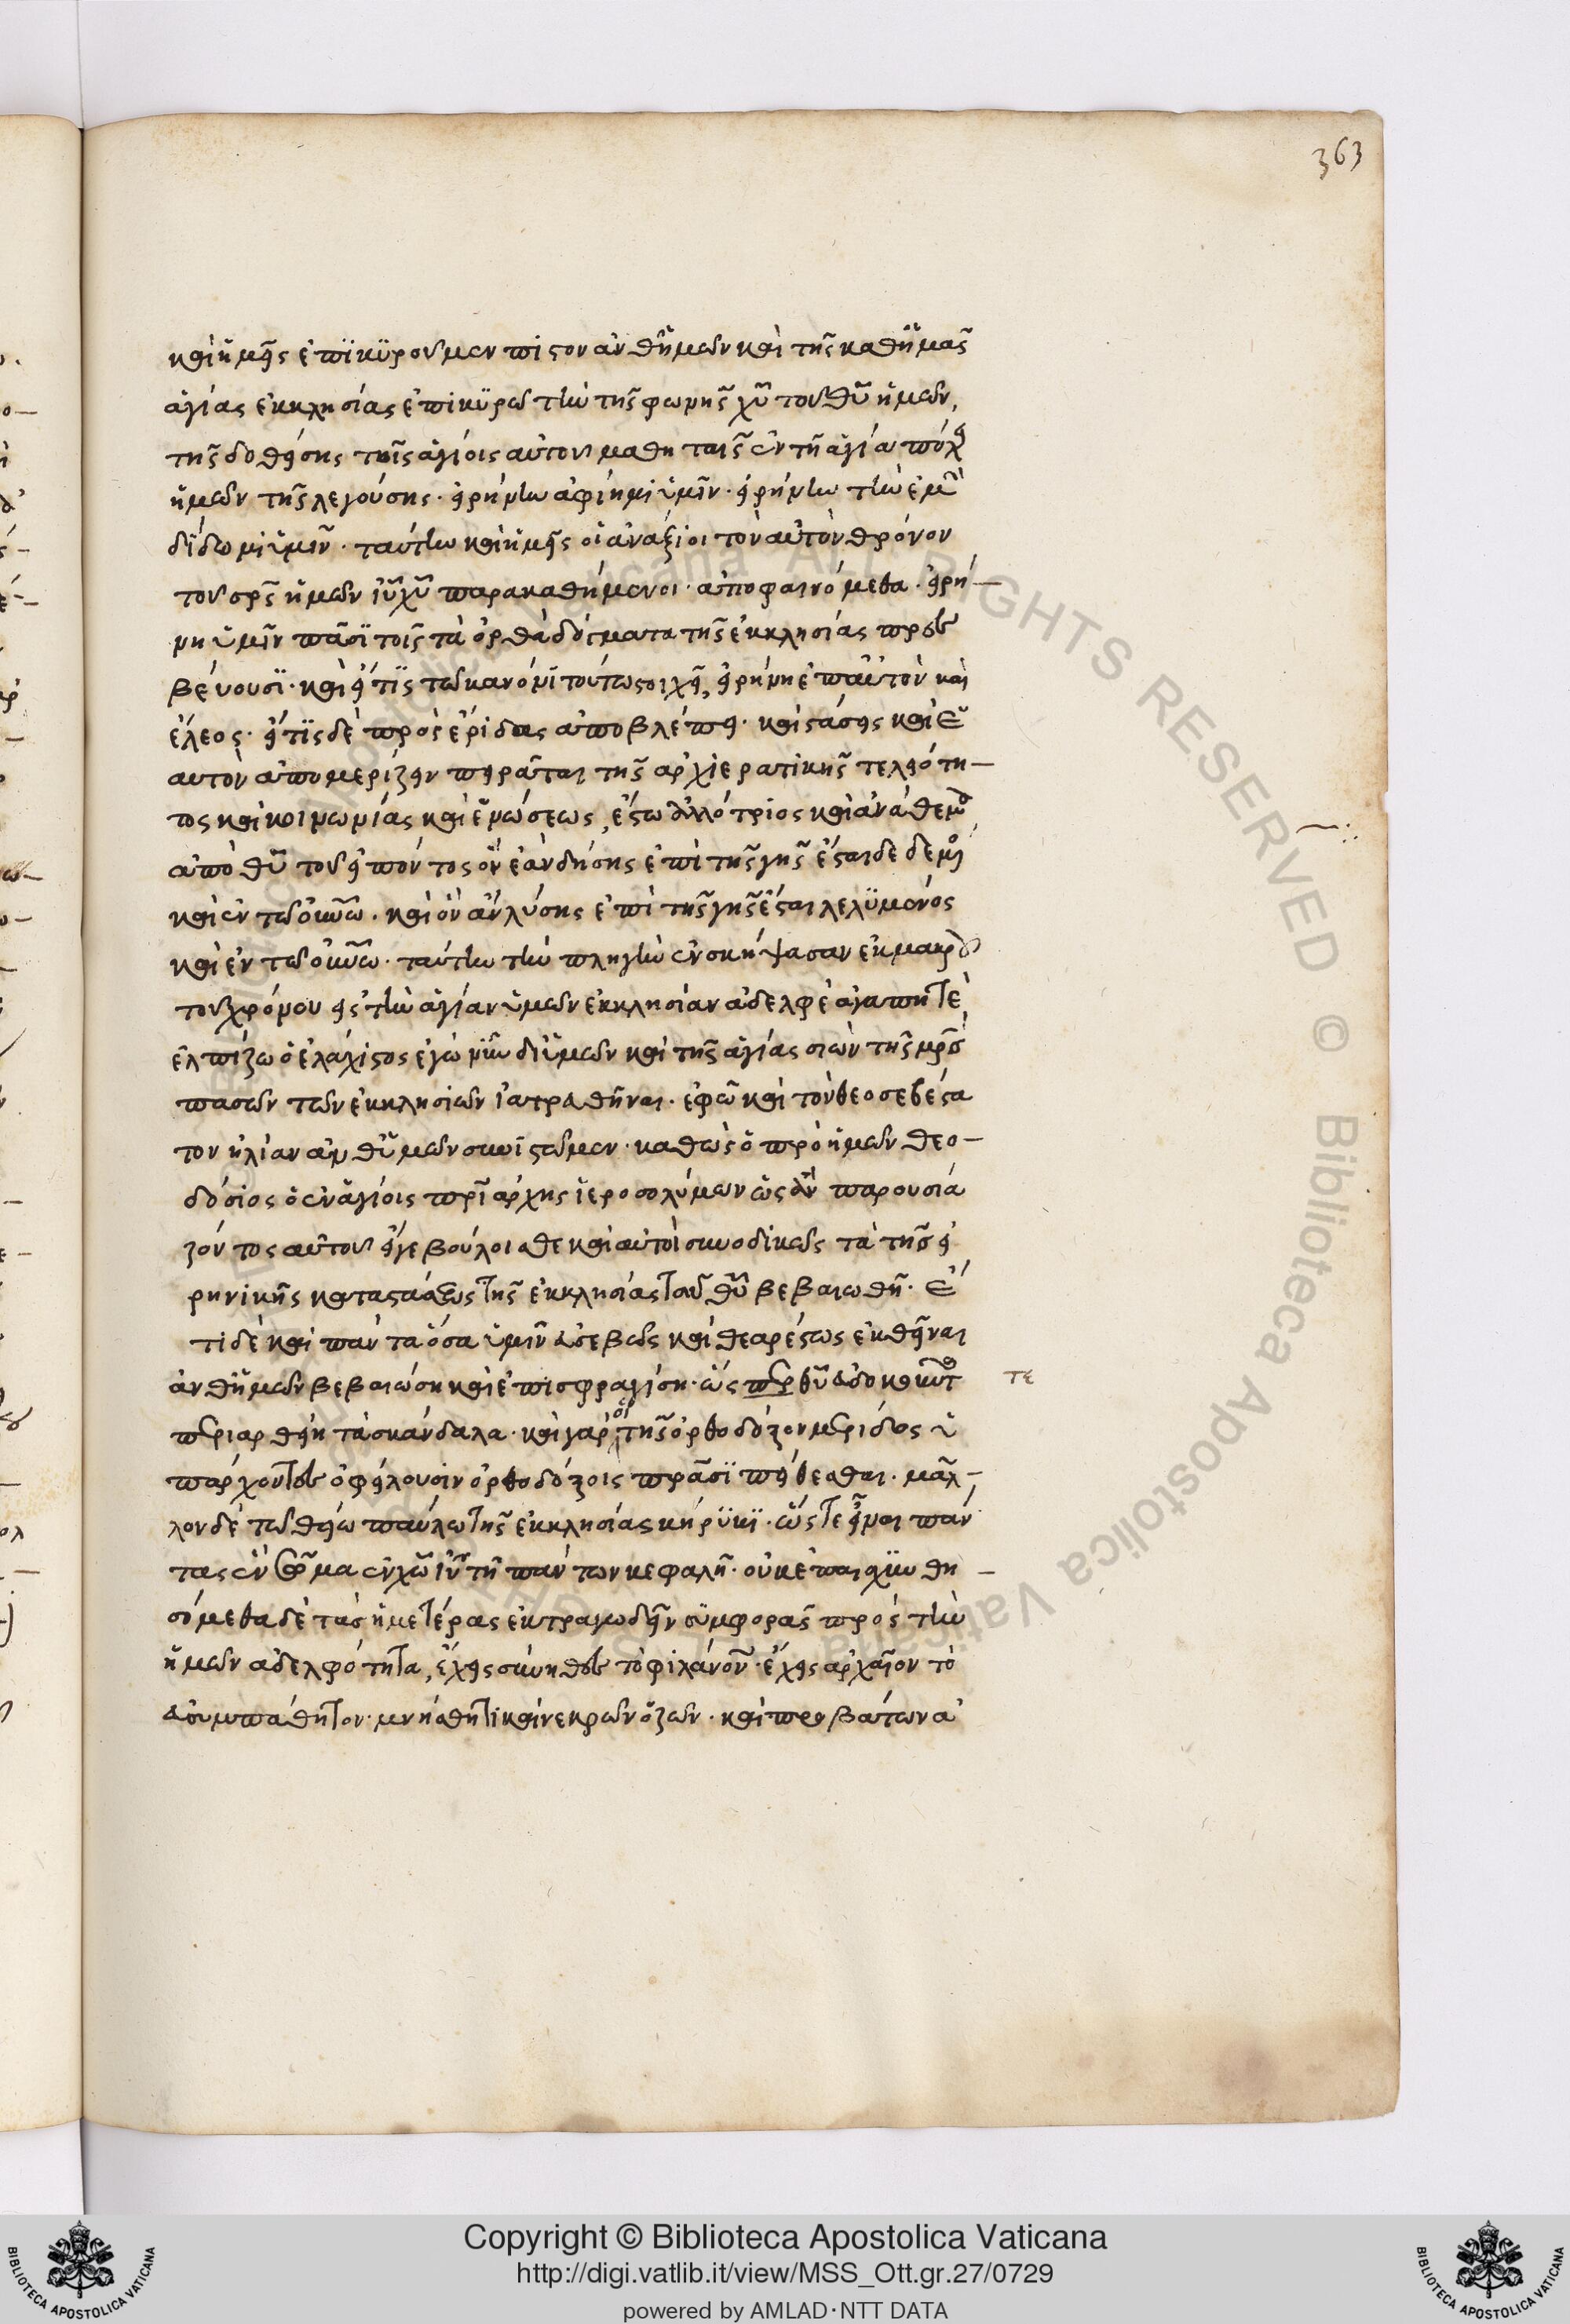 363
καὶ ἡμεῖς ἐπϊκϋροῦμεν πιστὸν ἀνθ' ἡμῶν καὶ τῆς καθ' ἡμᾶς
ἁγίας ἐκκλησίας ἐπικϋρῶ τὴν τῆς φωνῆς χῦ τοῦ θῦ ἡμῶν,
τῆς δοθείσης τοῖς ἁγίοις αὐτοῦ μαθηταῖς ἐν τῆ ἁγία
ἡμῶν τῆς λεγούσης· εἰρήνην ἀφίημι ὑμῖν· εἰρήνην τὴν ἐμὴν
δίδωμι ὑμῖν· ταύτην καὶ ἡμεῖς οἱ ἀνάξιοι τὸν αὐτὸν θρόνον
τοῦ σρς ἡμῶν ἰῦ χῦ παρακαθήμενοι ἀποφαινόμεθα· εἰρή-
νη ὑμῖν πᾶσϊ τοῖς τὰ ὀρθὰ δόγματα τῆς ἐκκλησίας πρεσ
βεύουσϊ· καὶ εἴ τϊς τῶ κανόνϊ τούτω στοιχεῖ, εἰρήνη ἐπ' αὐτὸν καὶ
ἔλεος· εἴ τϊς δὲ πρὸς ἔριδας ἀποβλέπει· καὶ στάσεις καὶ ἑ
αυτὸν ἀπομερίζειν πειρᾶται τῆς ἀρχιερατικῆς τελειότη-
τος καὶ κοινωνίας καὶ ἑνώσεως, ἔστω ἀλλότριος καὶ ἀνάθεμα
ἀπὸ θῦ τοῦ εἰπόντος ὃν ἐὰν δήσης ἐπὶ τῆς γῆς ἔσται δεδεμένος
καὶ ἐν τῶ οὐνῶ· καὶ ὃν ἂν λύσης ἐπὶ τῆς γῆς ἔσται λελϋμένος
καὶ ἐν τῶ οὐνῶ· ταύτην τὴν πληγὴν ἐνσκήψασαν ἐκ μακροῦ
τοῦ χρόνου εἰς τὴν ἁγίαν ὑμῶν ἐκκλησίαν ἀδελφὲ ἀγαπητὲ,
ἐλπίζω ὁ ἐλάχιστος ἐγὼ νῦν δι' ὑμῶν καὶ τῆς ἁγίας σιὼν τῆς μρς
πασῶν τῶν ἐκκλησιῶν ἰατρευθῆναι· ἐφ' ὧ καὶ τὸν θεοσεβέστα
τον ἠλίαν ἀνθ' ὑμῶν συνιστῶμεν· καθὼς ὁ πρὸ ἡμῶν θεο-
δόσιος ὁ ἐν ἁγίοις πριάρχης ἱεροσολύμων ὡς ἂν παρουσιά
ζοντος αὐτοῦ εἴγε βούλοισθε καὶ αὐτοὶ συνοδικῶς τὰ τῆς εἰ
ρηνικῆς καταστάσεως τῆς ἐκκλησίας τοῦ θῦ βεβαιωθῆ· ἔ
τι δὲ καὶ πάντα ὅσα ὑμῖν εὐσεβῶς καὶ θεαρέστως ἐκθεῖναι
ἀνθ' ἡμῶν βεβαιώση καὶ ἐπισφραγίση· ὡς
τε
περιαρθείη τὰ σκάνδαλα· καὶ γὰρ οἱ τῆς ὀρθοδόξου μερίδος ὑ
πάρχοντες ὀφείλουσιν ὀρθοδόξοις πράσϊ πείθεσθαι· μᾶλ-
λον δὲ τῶ θείω παύλω τῆς ἐκκλησίας κήρϋκϊ· ὥστε εἶναι πάν
τας ἓν σῶμα ἐν χῶ ἰῦ τῆ πάντων κεφαλῆ· οὐκ ἐπαισχϋνθη-
σόμεθα δὲ τὰς ἡμετέρας ἐκτραγωδεῖν συμφορὰς πρὸς τὴν
ἡμῶν ἀδελφότητα, ἔχεις σύνηθες τὸ φιλάνον· ἔχεις ἀρχαῖον τὸ
εὐσυμπάθητον· μνήσθητι καὶ νεκρῶν ὄζων· καὶ προβάτων ἀ
Copyright © Biblioteca Apostolica Vaticana
http://digi.vatlib.it/view/MSS_Ott.gr.27/0729
powered by AMLAD·NTT DATA